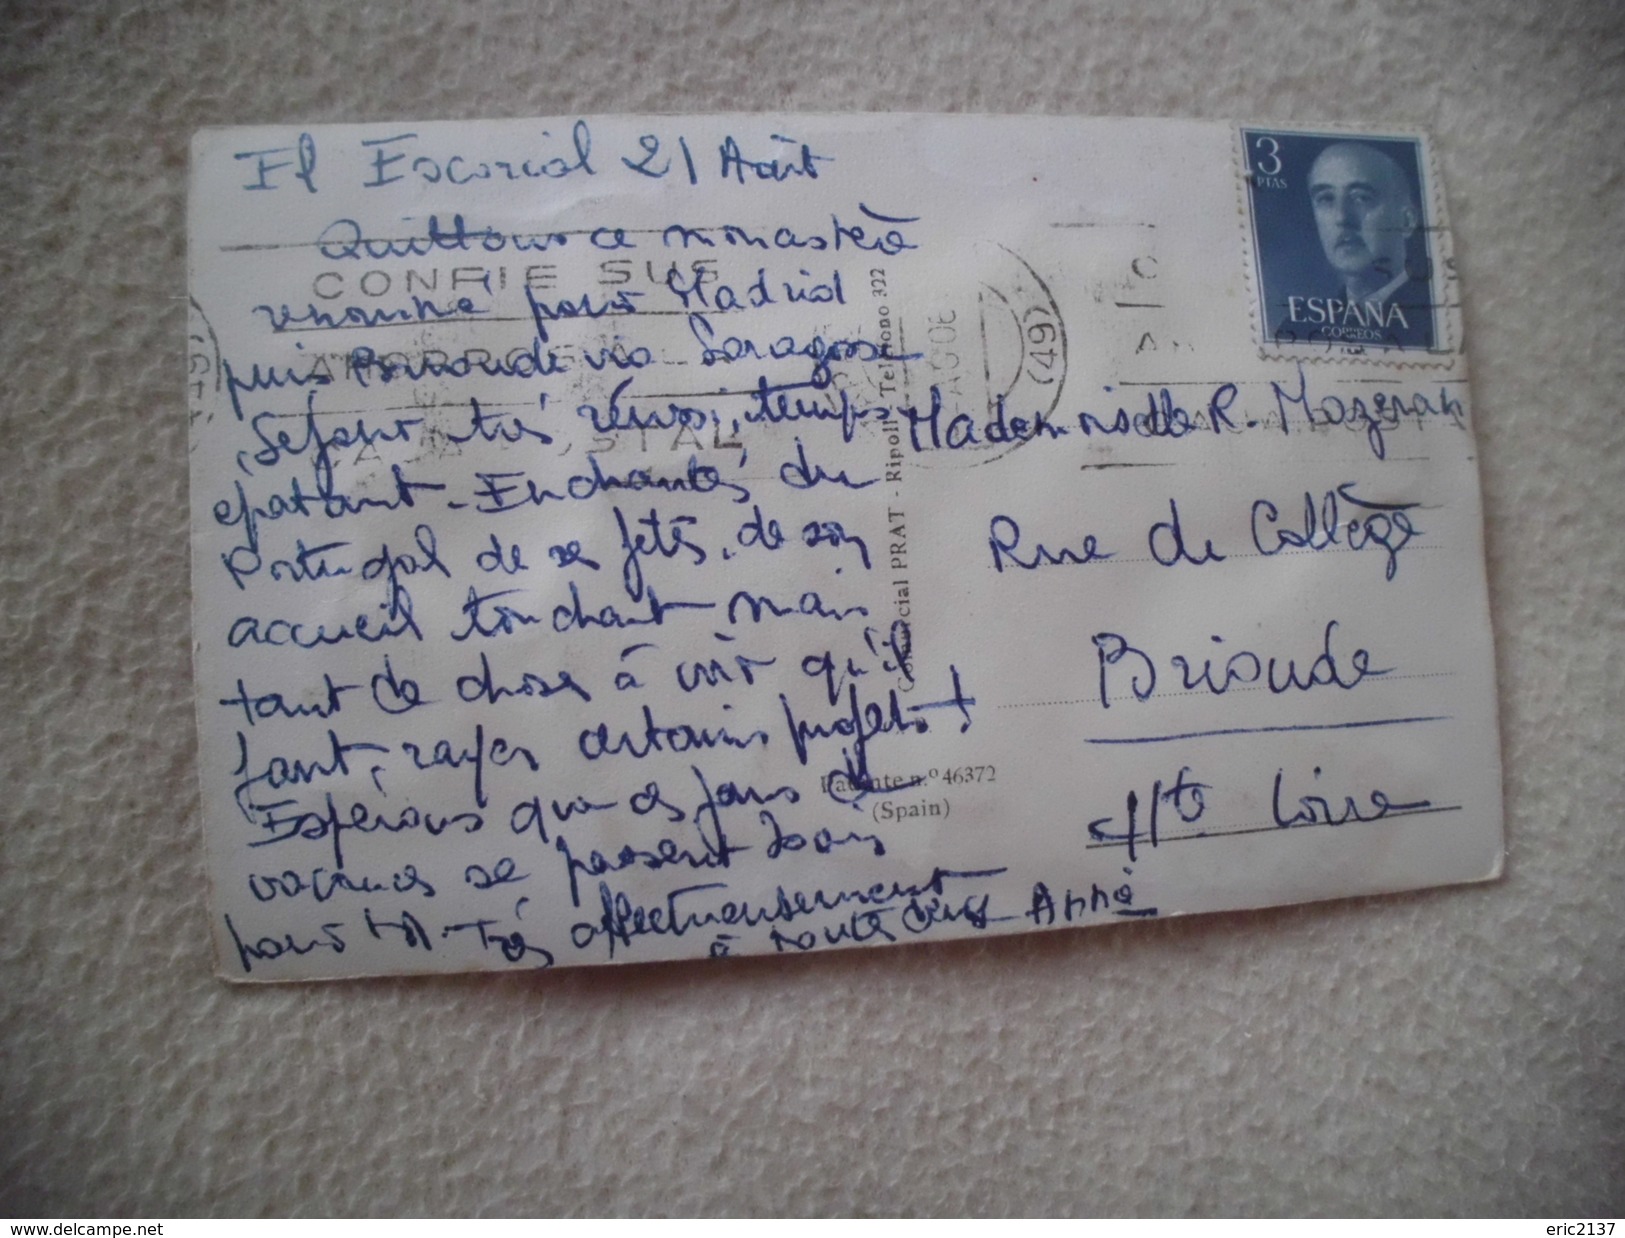 El Escorial 21 Août
Quittons ce monastère
renommé pour Madrid
puis Brioude via Saragosse
Séjour très réussi, temps
épatant - Enchantés du
Portugal de ses fêtes, de son
accueil touchant mais
tant de choses à voir qu'il
faut, rayer certains projets !
Espérons que ces jours de
vacances se passent bien
pour M. Très affectueusement
à toutes deux Anne
CONFIE SUS
POSTAL
Comercial PRAT - Ripoll - Telefono 322
Patente n.º 46372
(Spain)
(49)
3
PTAS
ESPAÑA
CORREOS
Mademoiselle R. Mazeran
Rue du Collège
Brioude
Hte Loire
www.delcampe.net
eric2137